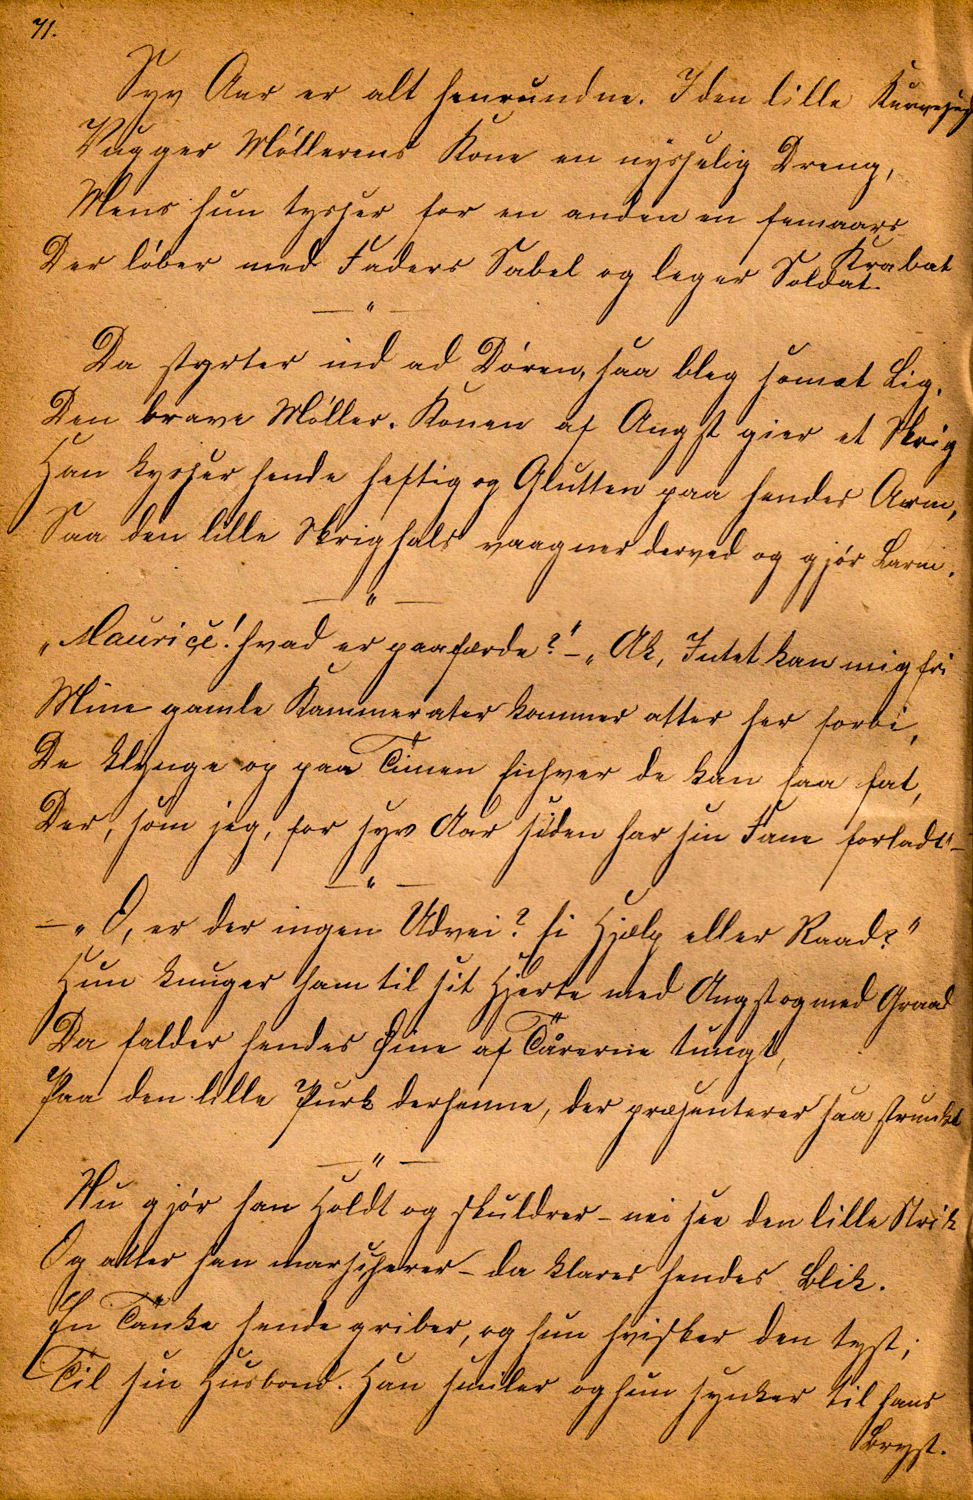 71.
Syv Aar er alt henrundne. I den lille Kurveseng
Vugger Möllerens Kone en nysselig Dreng,
Mens hun tysser for en anden en femaars
Krabat
Der löber med Faders Sabel og leger Soldat.
— " —
Da styrter ind ad Dören, saa bleg som et Lig,
Den brave Möller. Konen af Angst gier et Skrig
Han kysser hende heftig og Glutten paa hendes Arm,
Saa den lille Skrighals vaagner derved og gjör Larm.
— " —
„Maurice! hvad er paafærde?" – „Ak, Intet kan mig fri
Mine gamle Kammerater kommer atter her forbi,
De klynge op paa Timen Enhver de kan faa fat,
Der, som jeg, for syv Aar siden har sin Fane forladt" –
— " —
– „O, er der ingen Udvei? Ei Hjælp eller Raad?"
Hun knuger ham til sit Hjerte med Angst og med Graad
Da falder hendes Öine af Tårerne tungt,
Paa den lille Purk derhenne, der præsenterer saa strunkt
— " —
Nu gjör han Holdt og skuldrer – nei see den lille Strik
Og atter han marscherer – da klares hendes Blik.
En Tanke hende griber, og hun hvisker den tyst;
Til sin Husbond. Han smiler og hun synker til hans
Bryst.